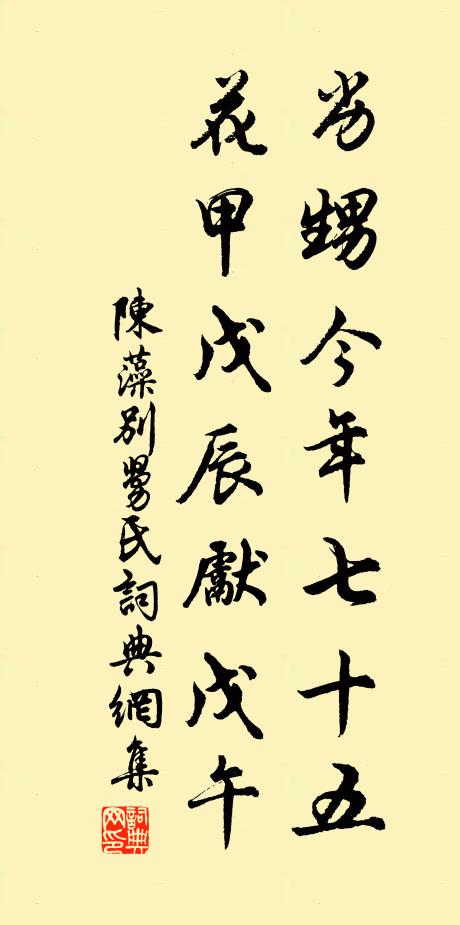 劣甥今年七十五
花甲戊辰獻戊午
陳藻別舅氏詞典網集
詞典
网印